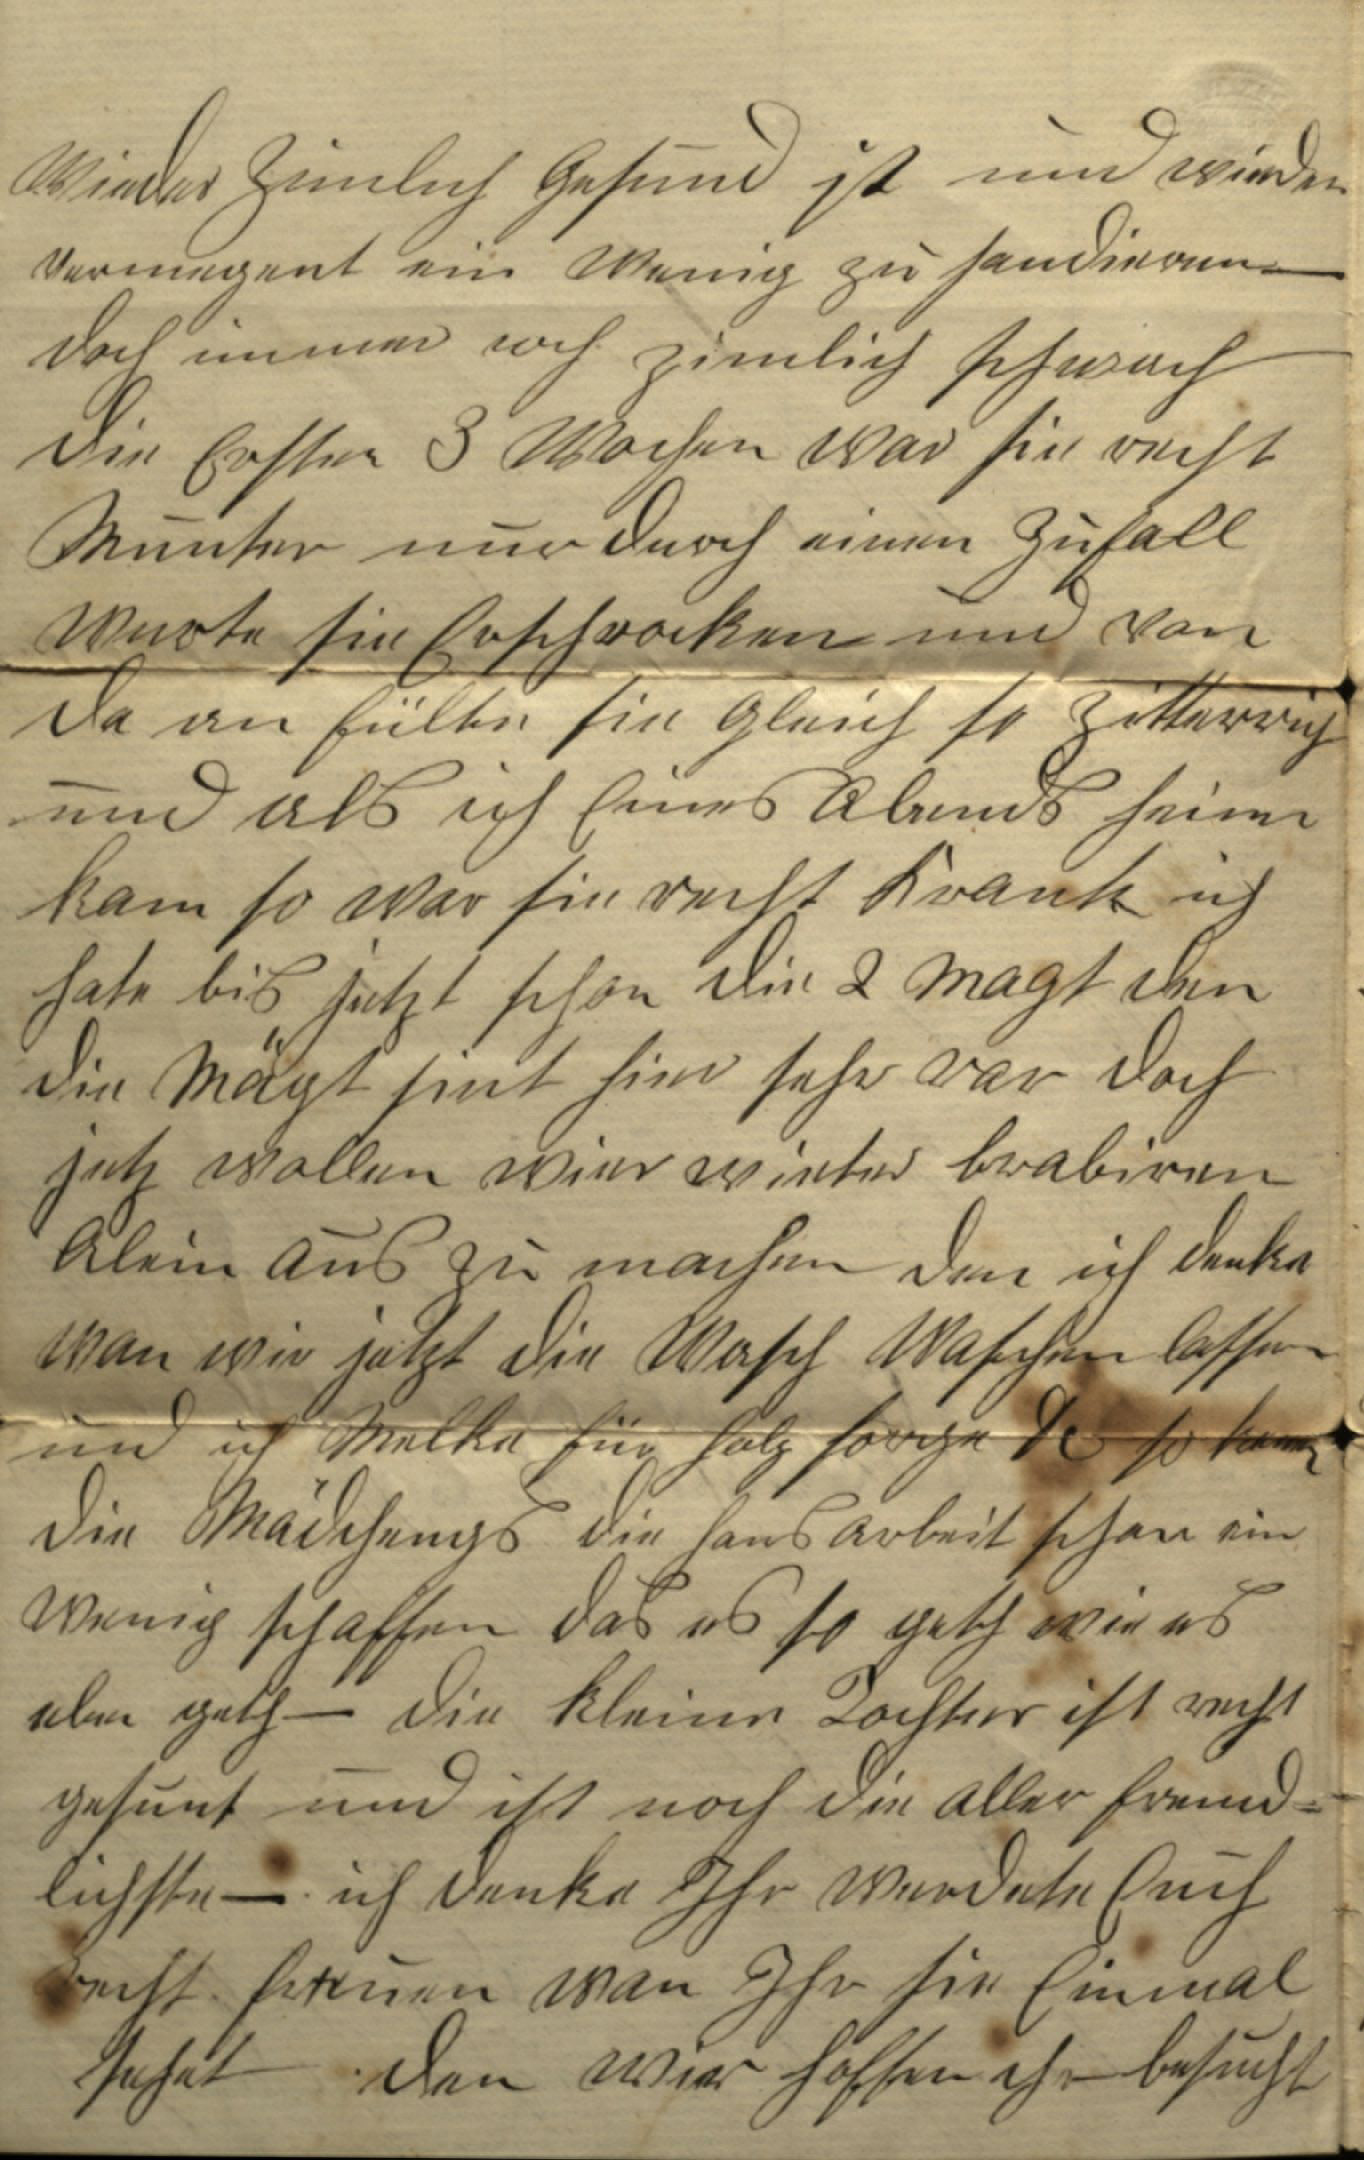 Wieder Zimlich Gesund ist und wieder
vermegent ein Wenig zu handieren —
doch immer noch zimlich schwach
die Ersten 3 Wochen war sie recht
Munter nur durch einen Zufall
wurte sie Erschrocken und von
da an fülte sie gleich so zitterrich
und als ich Eines Abends heim
kam so war sie recht Krank ich
hate bis jetzt schon die 2 Magt den
die Mägt sint hier sehr rar doch
jetz wollen wier wieter brabiren
Alein aus zu machen den ich denke
wan wir jetzt die Wasch Waschen lassen
und ich Melke für holz sorge &c so kenen
die Mädchengs die Hausarbeit schon ein
wenig schaffen das es so geth wie es
eben geth — die kleine Tochter ist recht
gesunt und ist noch die aller freund=
lichste — ich denke Ihr werdete Euch
recht freuen wan Ihr sie Einmal
sehet den wier hoffen ihr besucht